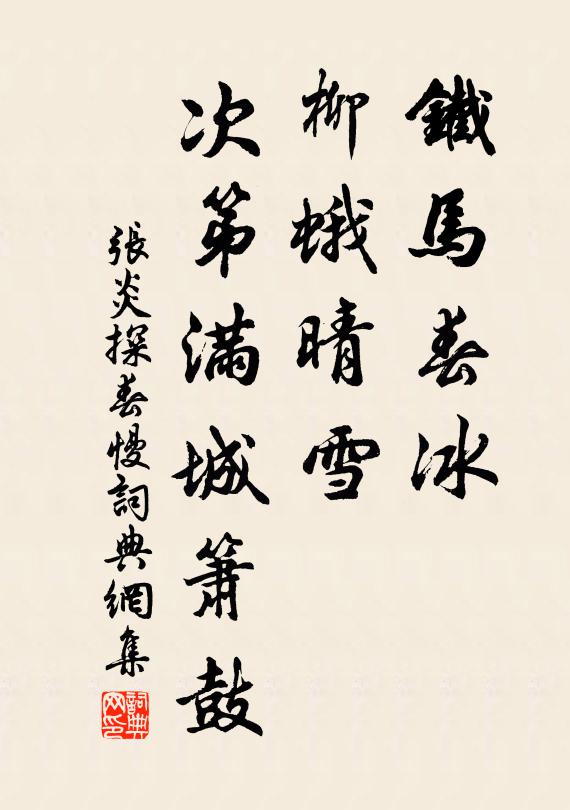 鐵馬春冰
柳蛾晴雪
次第滿城簫鼓
張炎探春慢詞典網集
詞典网印